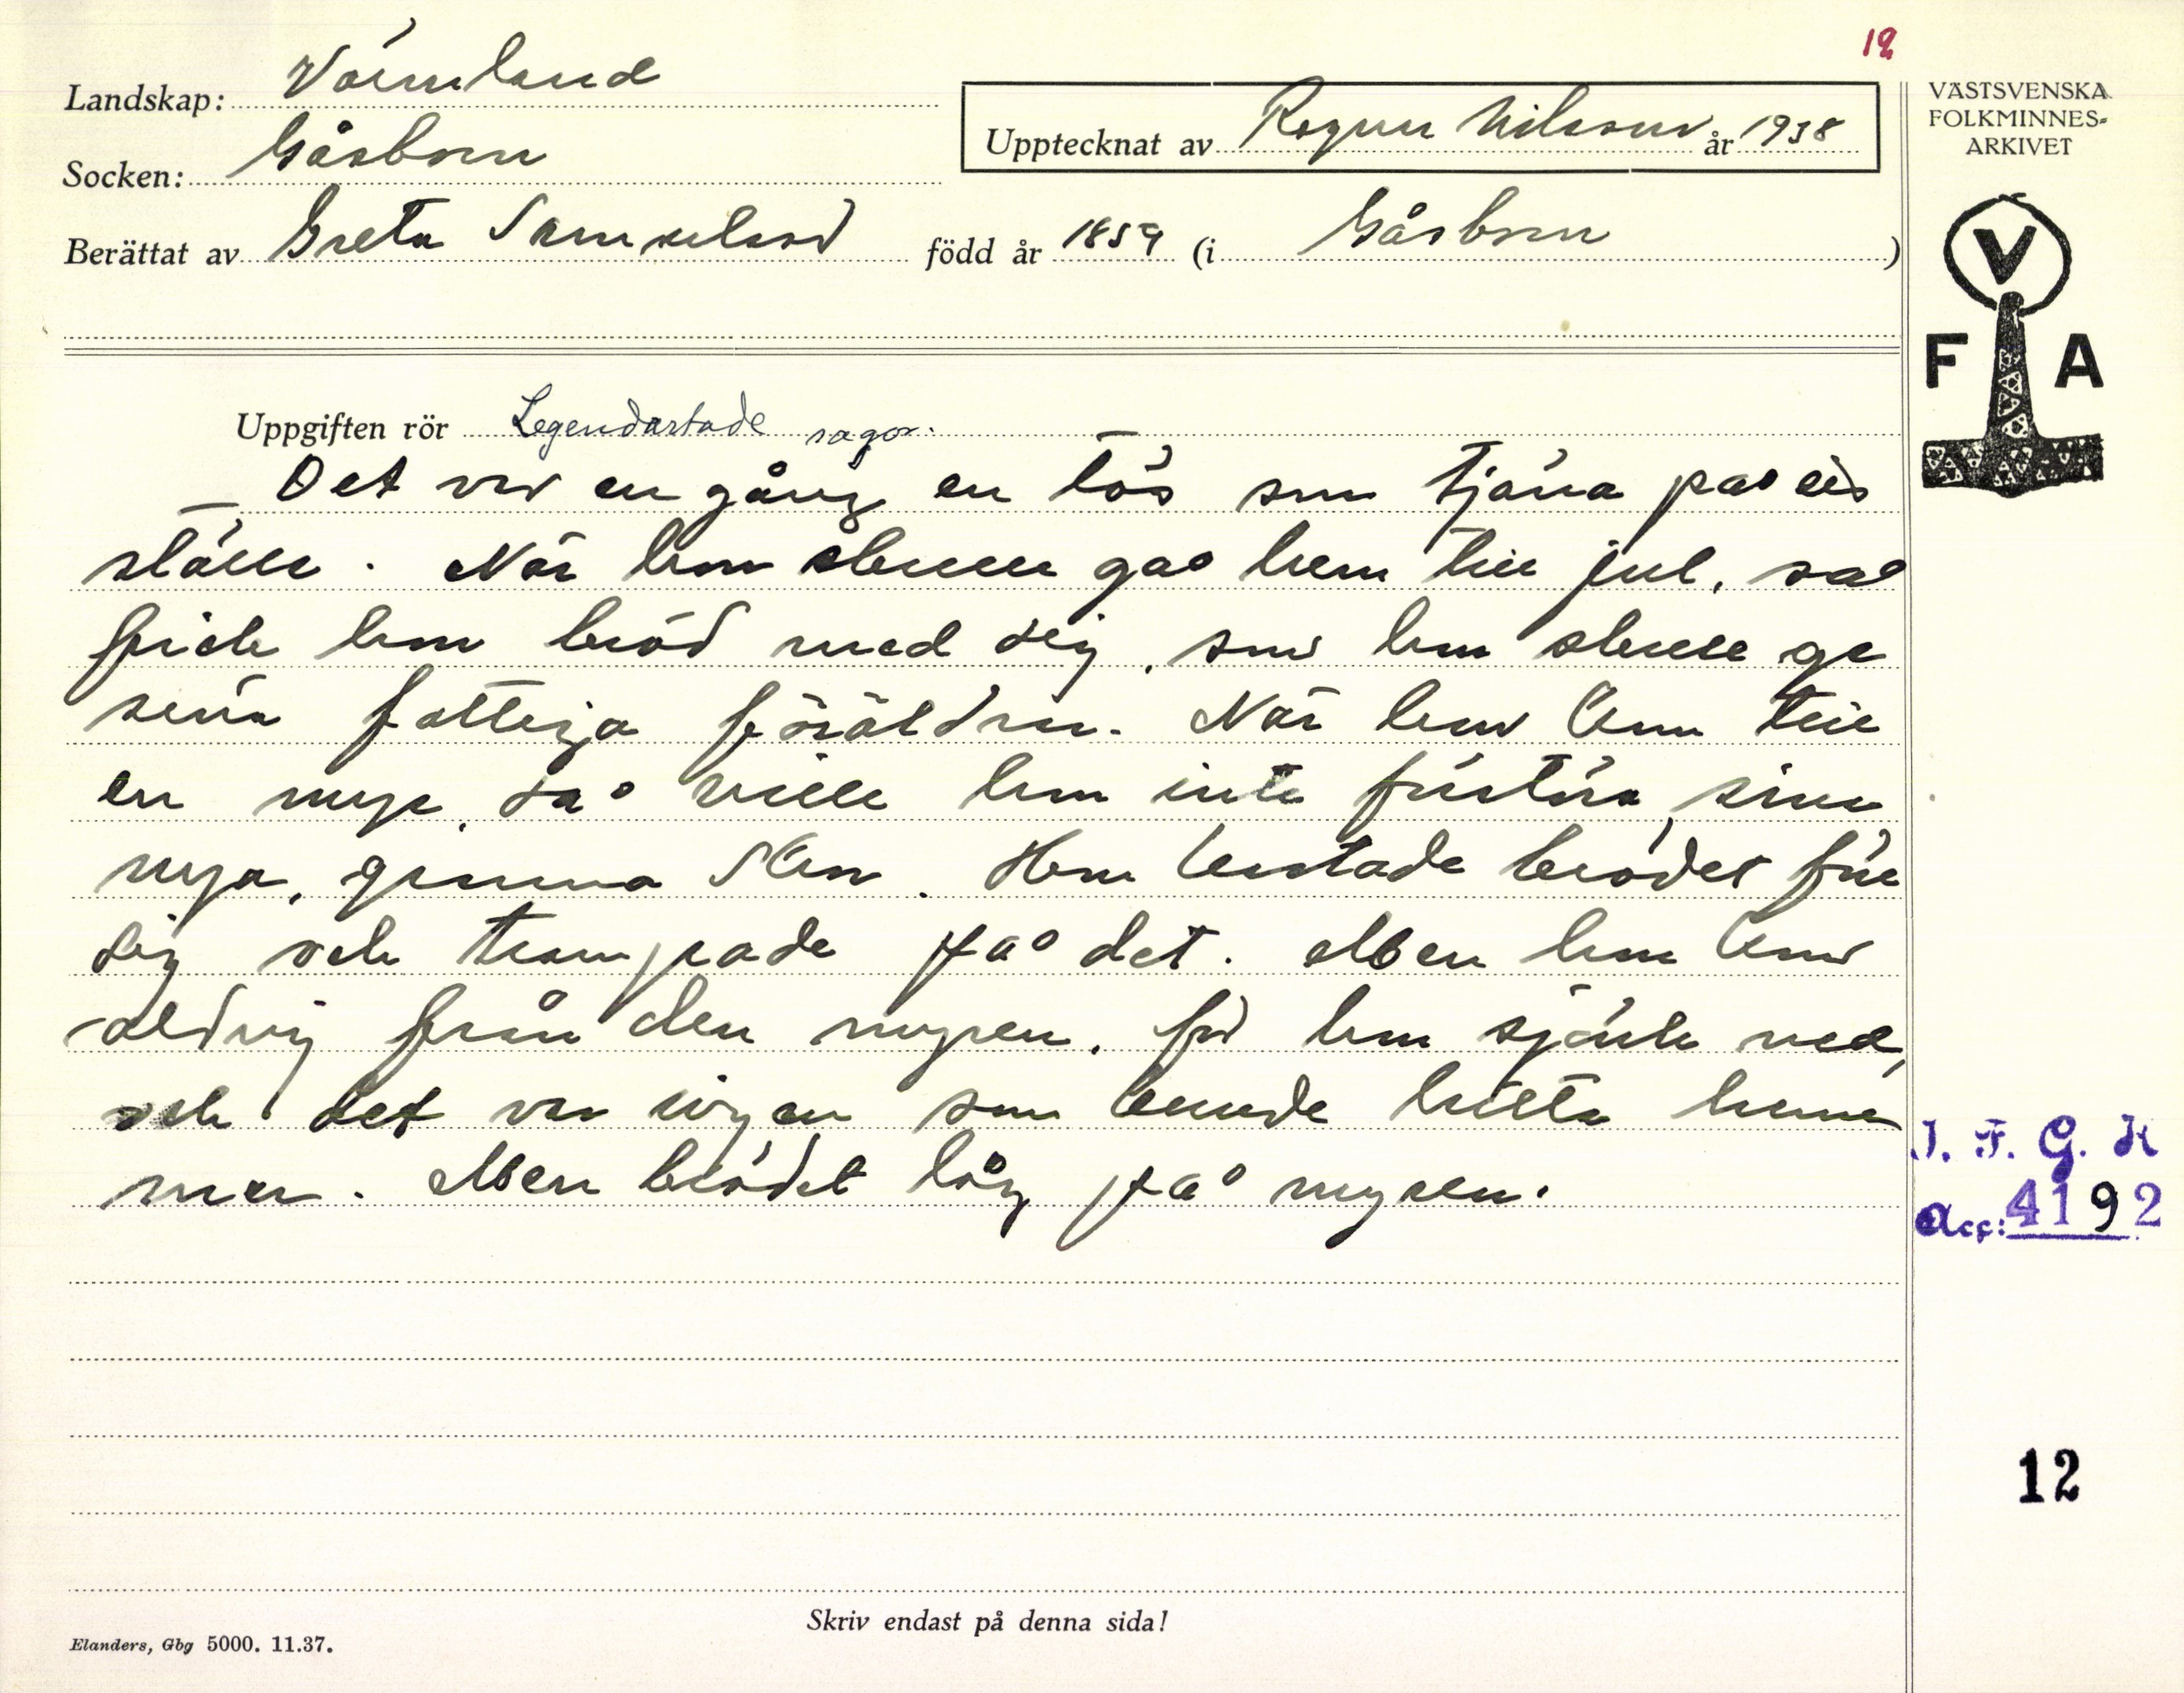 12
Landskap: Värmland
Socken: Gåsborn
Upptecknat av Ragnar Nilsson år 1938
Berättat av Greta Samuelsson född år 1859 (i Gåsborn)
VÄSTSVENSKA
FOLKMINNES-
ARKIVET
V
F A
Uppgiften rör Legendartade sagor.
Det var en gång en tös som tjäna på ett
ställe. När hon skulle gå hem till jul, så
fick hon bröd med sej, som hon skulle ge
sina fattiga föräldrar. När hon kom till
en myr, då ville hon inte förstöra sina
nya, granna skor. Hon kastade brödet för
sig och trampade på det. Men hon kom
aldrig från den myren, för hon sjönk ned,
och det var ingen som kunde hitta henne
mer. Men brödet låg på myren.
I. F. G. H
Acc: 4192
12
Skriv endast på denna sida!
Elanders, Gbg 5000. 11.37.